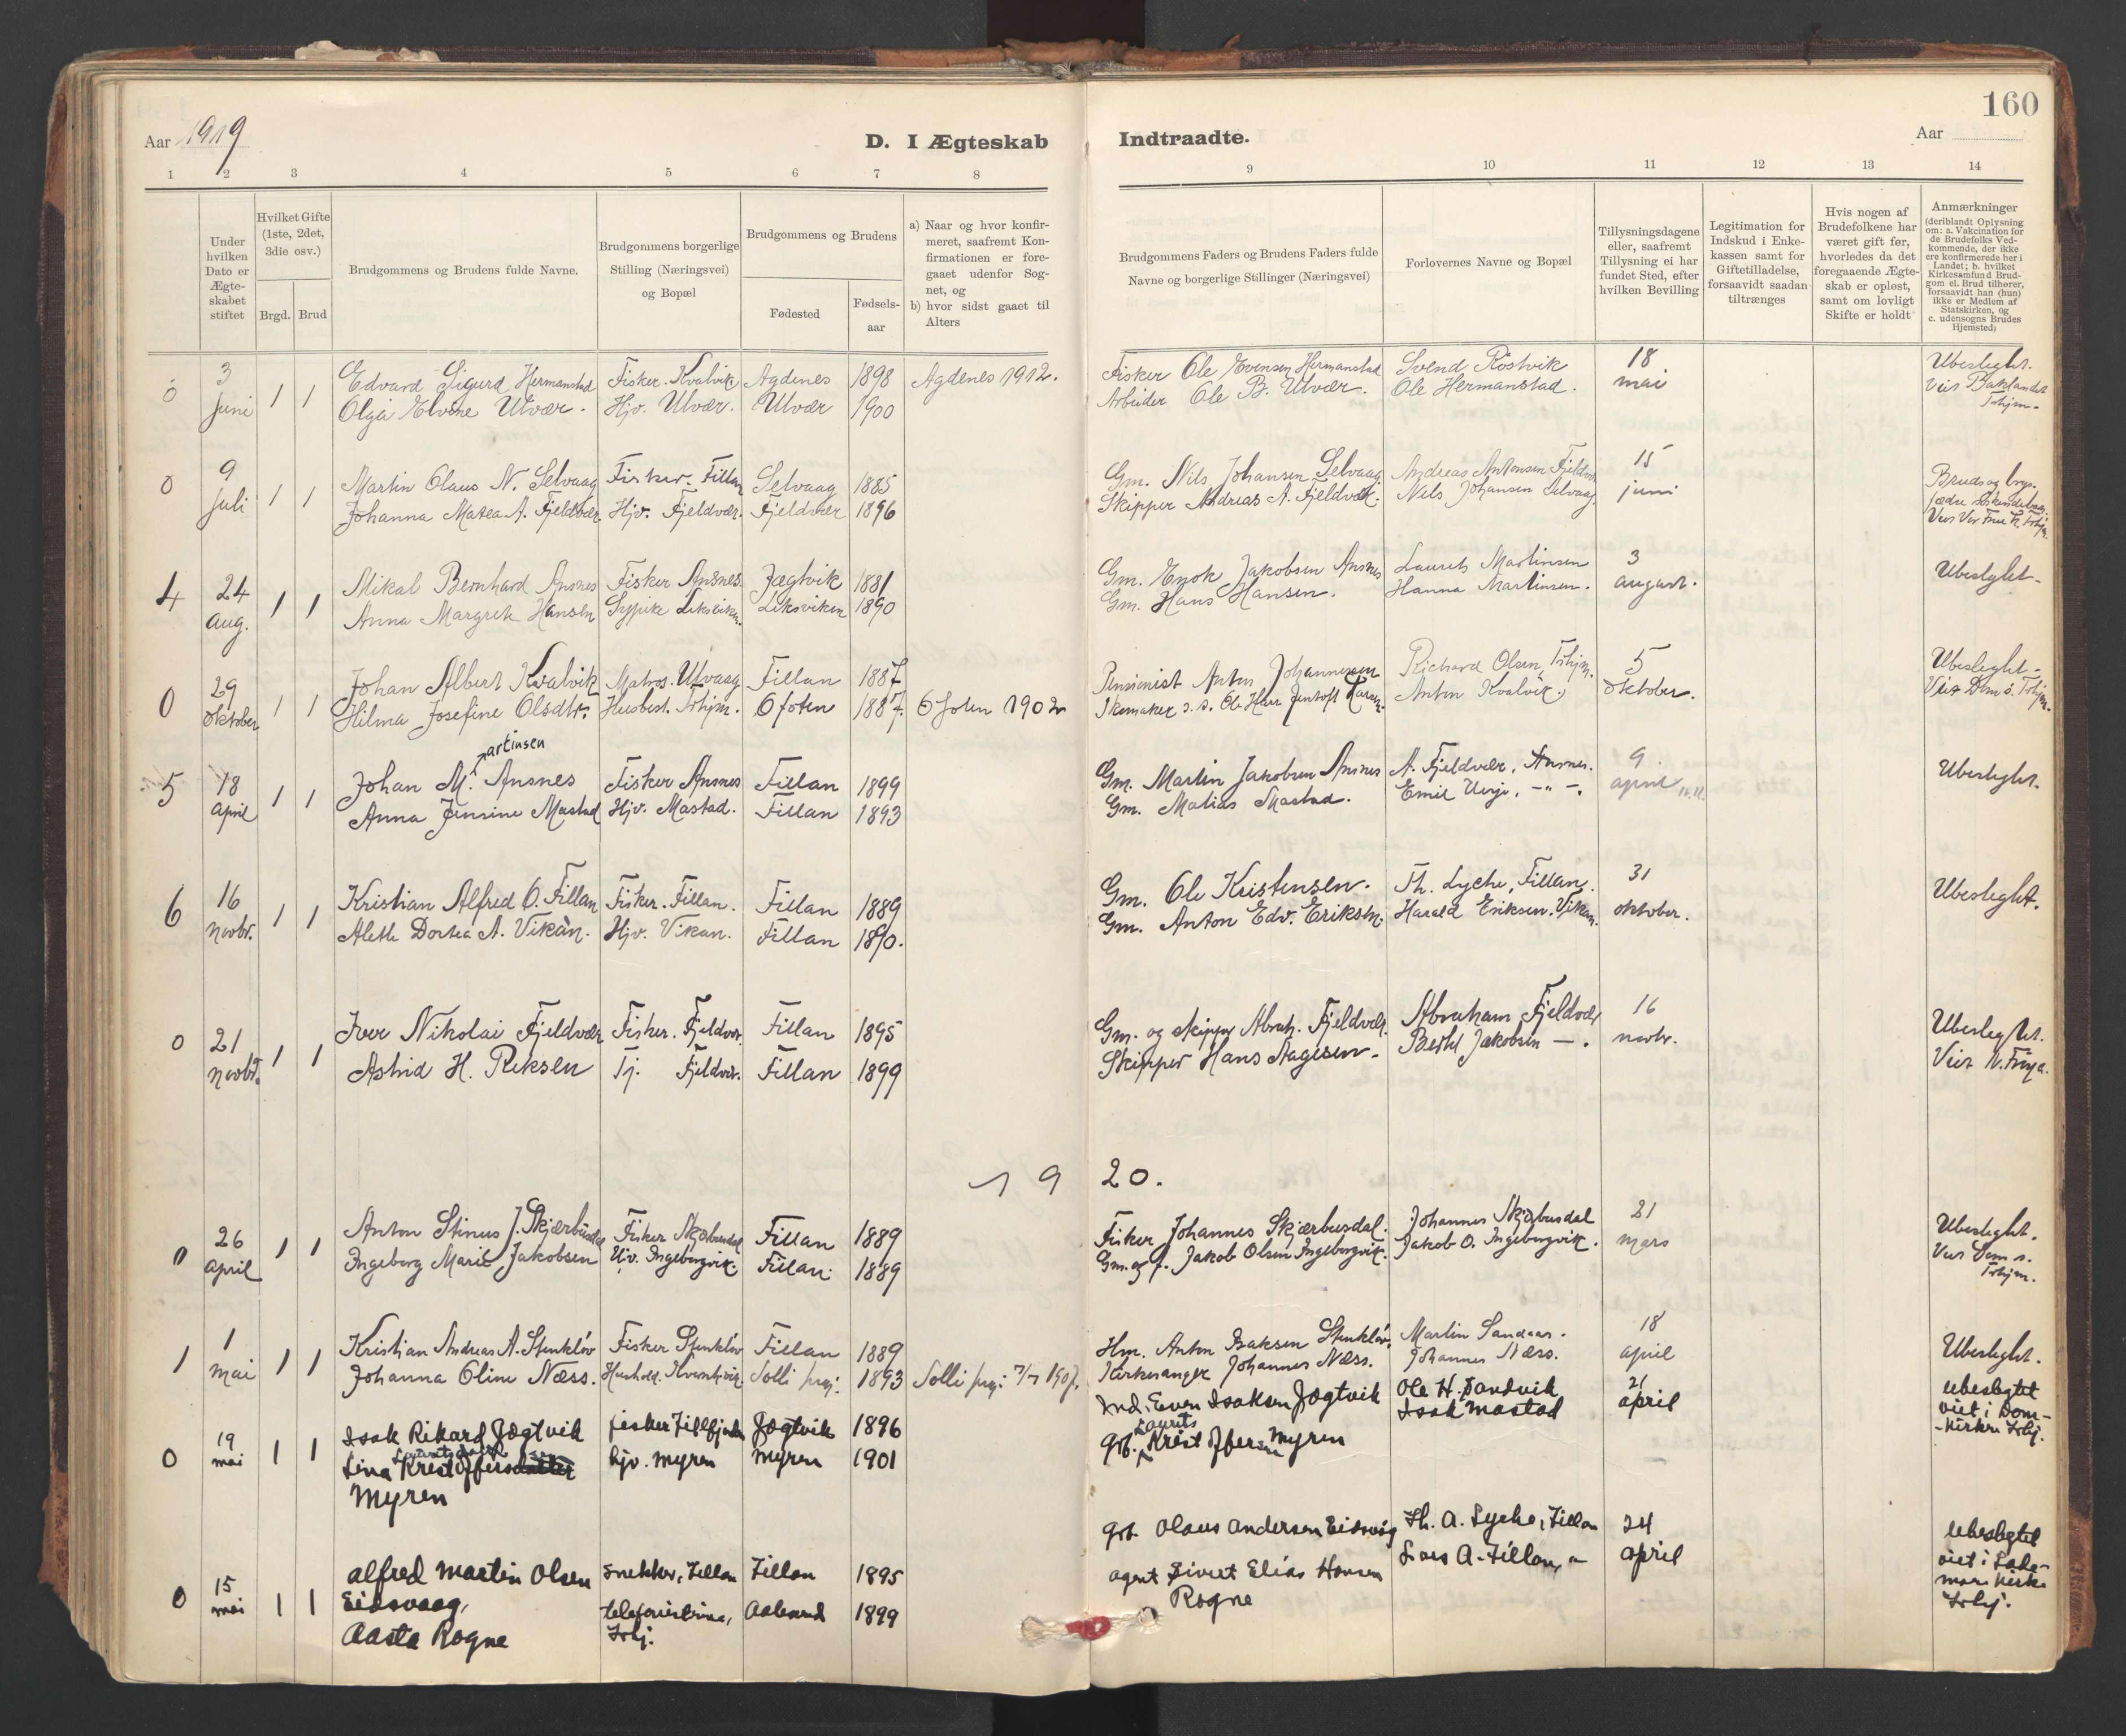 160
Aar 1919
D. I Ægteskab Indtraadte.
Aar
1 2 3 4 5 6 7 8 9 10 11 12 13 14
Under hvilken Dato er Ægteskabet stiftet
Hvilket Gifte (1ste, 2det, 3die osv.)
Brgd. Brud
Brudgommens og Brudens fulde Navne.
Brudgommens borgerlige Stilling (Næringsvei) og Bopæl
Brudgommens og Brudens
Fødested
Fødsels-aar
a) Naar og hvor konfirmeret, saafremt Konfirmationen er foregaaet udenfor Sognet, og
b) hvor sidst gaaet til Alters
Brudgommens Faders og Brudens Faders fulde Navne og borgerlige Stillinger (Næringsvei)
Forlovernes Navne og Bopæl
Tillysningsdagene eller, saafremt Tillysning ei har fundet Sted, efter hvilken Bevilling
Legitimation for Indskud i Enkekassen samt for Giftetilladelse, forsaavidt saadan tiltrænges
Hvis nogen af Brudefolkene har været gift før, hvorledes da det foregaaende Ægteskab er opløst, samt om lovligt Skifte er holdt
Anmærkninger (deriblandt Oplysning om: a. Vakcination for de Brudefolks Vedkommende, der ikke ere konfirmerede her i Landet; b. hvilket Kirkesamfund Brudgom el. Brud tilhører, forsaavidt han (hun) ikke er Medlem af Statskirken, og c. udensogns Brudes Hjemsted)
0 3 juni 1 1 Edvard Sigurd Hermanstad Fisker. Kvalvik Agdenes 1898 Agdenes 1912. Fisker Ole Evensen Hermanstad Svend Rostvik 18 mai Ubesleght.
Olga Elvine Utvær. Hjv. Utvær. Utvær 1900 Arbeider Ole B. Utvær. Ole Hermanstad. Viet Baklandet Trhjm.
0 9 juli 1 1 Martin Olaus N. Selvaag Fisker. Fillan Selvaag 1885 Gm. Nils Johansen Selvaag Andreas Antonsen Fjeldvær 15 juni
Johanna Matea A. Fjeldvær. Hjv. Fjeldvær. Fjeldvær 1896 Skipper Andreas A. Fjeldvær. Nils Johansen Selvaag. Viet Vor Frue K. Trhjm.
4 24 aug. 1 1 Mikal Bernhard Ansnes Fisker Ansnes. Jægtvik 1881 Gm. Enok Jakobsen Ansnes Laurits Martinsen 3 august. Ubeslght.
Anna Margrete Hansen Leksviken 1890 Gm. Hans Hansen. Hanna Martinsen.
0 29 oktober 1 1 Johan Albert Kvalvik Matros. Utvaag Fillan 1887 Pensionist Anton Johannesen Richard Olsen, Trhjm. 5 oktober. Ubesleght.
Hilma Josefine Olsdtr. Husbest. Trhjm. Ofoten 1887. Ofoten 1902 Anton Kvalvik. Viet Dom s. Trhjm.
5 18 april 1 1 Johan M.artinsen Ansnes Fisker Ansnes Fillan 1899 Gm. Martin Jakobsen Ansnes A. Fjeldvær, Ansnes. 9 april Ubesleght.
Anna Jensine Mastad Hjv. Mastad. Fillan 1893 Gm. Matias Mastad. Emil -"-
6 16 novbr. 1 1 Kristian Alfred O. Fillan Fisker. Fillan. Fillan 1889 Gm. Ole Kristensen. Th. Lyche, Fillan. 31 oktober. Ubesleght.
Alette Dortea A. Vikan. Hjv. Vikan. Fillan 1890. Gm. Anton Edv. Eriksen. Harald Eriksen. Vikan.
0 21 novbr. 1 1 Iver Nikolai Fjeldvær Fisker. Fjeldvær. Fillan 1895 Gm. og skipper Abrah. Fjeldvær. Abraham Fjeldvær 16 novbr. Ubesleght.
Astrid H. Reksen Tj. Fjeldvær. Fillan 1899 Skipper Hans Aagesen. Bertel Jakobsen —. Viet N. Frøya.
1920.
0 26 april 1 1 Anton Stinus J. Skjærbusdal Fisker Skjærbusdal Fillan 1889 Fisker Johannes Skjærbusdal. Johannes Skjærbusdal 21 mars Ubesleght.
Ingeborg Marie Jakobsen Hjv. Ingeborgvik. Fillan. 1889 Gm. og f. Jakob Olsen Ingeborgvik. Jakob O. Ingeborgvik. Viet Dom s. Trhjm.
1 1 mai 1 1 Kristian Andreas A. Stenkløv Fisker Stenkløv Fillan 1889 Hm. Anton Isaksen Stenkløv. Martin Sandaas. 18 april Ubesleght.
Johanna Oline Næss. Hushold. Kvernhvik. Solli prgj. 1893 Solli prgj. 7/7 1907. Kirkesanger Johannes Næss. Johannes Næss.
0 19 mai 1 1 Isak Rikard Jægtvik fisker Fillfjorden Jægtvik 1896 Ind. Even Isaksen Jægtvik Ole H. Sandvik 21 april ubeslegtet
Lina Lauritsdatter Kristoffersdatter Myren hjv. Myren Myren 1901 grb. Laurits Kristoffersen Myren Isak Mastad viet i Dom-kirken Trhj.
0 15 mai 1 1 Alfred Martin Olsen Eidsvaag, snekker, Fillan Fillan 1895 grb. Olaus Andersen Eidsvåg Th. A. Lyche, Fillan 24 april ubeslegtet
Aasta Rogne telefonistinne, Trhj. Aalesund 1899 agent Sivert Elias Hansen Rogne Lars A. Fillan, " viet i Lademoen kirke Trhj.